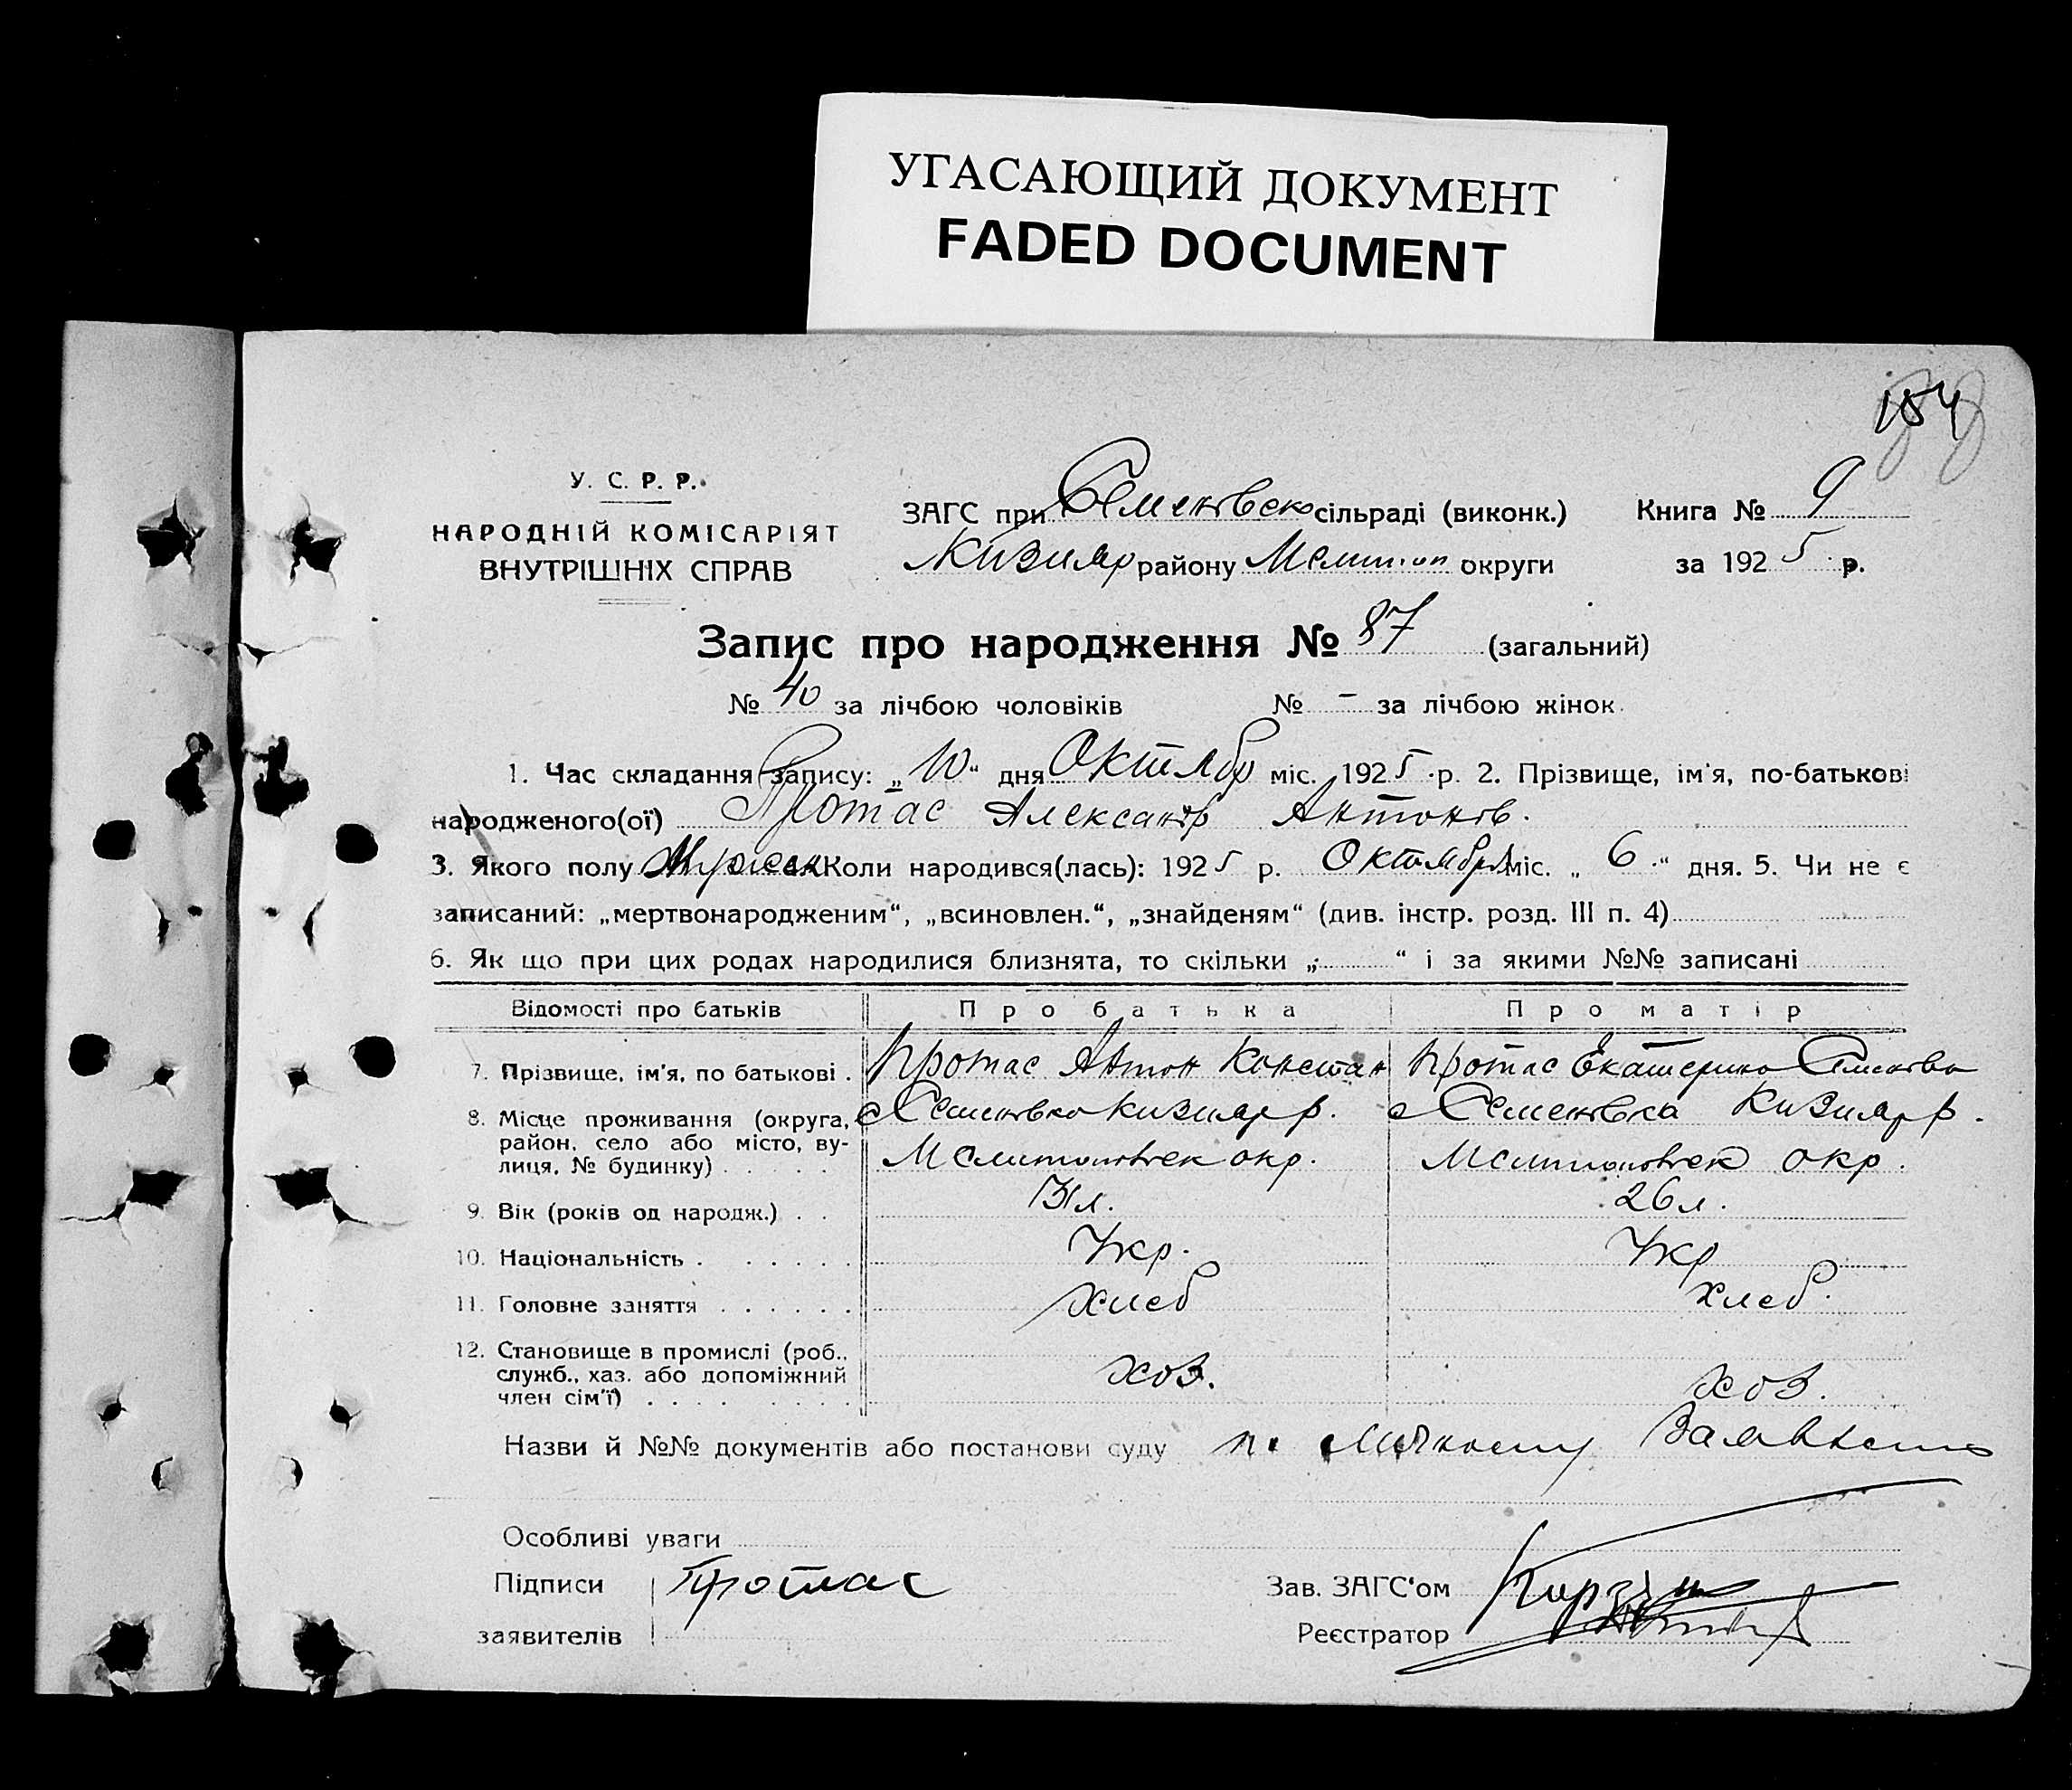 УГАСАЮЩИЙ ДОКУМЕНТ
FADED DOCUMENT
184
У. С. Р. Р.
НАРОДНІЙ КОМІСАРІЯТ
ВНУТРІШНІХ СПРАВ
ЗАГС при Семеновско сільраді (виконк.)
Книга № 9
Кизияр району Мелитоп округи
за 1925 р.
Запис про народження № 87 (загальний)
№ 40 за лічбою чоловіків № – за лічбою жінок.
1. Час складання запису: „10“ дня Октябр міс. 1925 р. 2. Прізвище, ім'я, по-батькові
народженого(ої) Протас Александр Антонов.
3. Якого полу Мужск 4. Коли народився(лась): 1925 р. Октября міс. „6“ дня. 5. Чи не є
записаний: „мертвонародженим“, „всиновлен.“, „знайденям“ (див. інстр. розд. III п. 4)
6. Як що при цих родах народилися близнята, то скільки „ “ і за якими №№ записані
Відомості про батьків Про батька Про матір
7. Прізвище, ім'я, по батькові . Протас Антон Констан Протас Екатерина Семенова
8. Місце проживання (округа, с Семеновка Кизияр р. с Семеновка Кизияр р.
район, село або місто, ву-
лиця, № будинку) . . . . Мелитоповск окр. Мелитоповск окр.
9. Вік (років од народж.) . . 31 л. 26 л.
10. Національність . . . . . . Укр. Укр
11. Головне заняття . . . . . . хлеб хлеб.
12. Становище в промислі (роб.,
служб., хаз. або допоміжний хоз. хоз.
член сім'ї) . . . . . . . .
Назви й №№ документів або постанови суду по личному заявлению
Особливі уваги
Підписи Протас
Зав. ЗАГС'ом
заявителів
Реєстратор